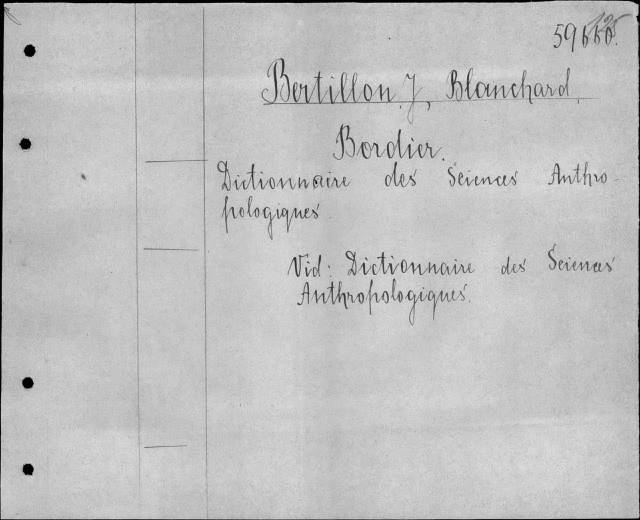 59660.
Bertillon. J, Blanchard,
Bordier.
Dictionnaire des Sciences Anthro-
pologiques.
Vid: Dictionnaire des Sciences
Anthropologiques.